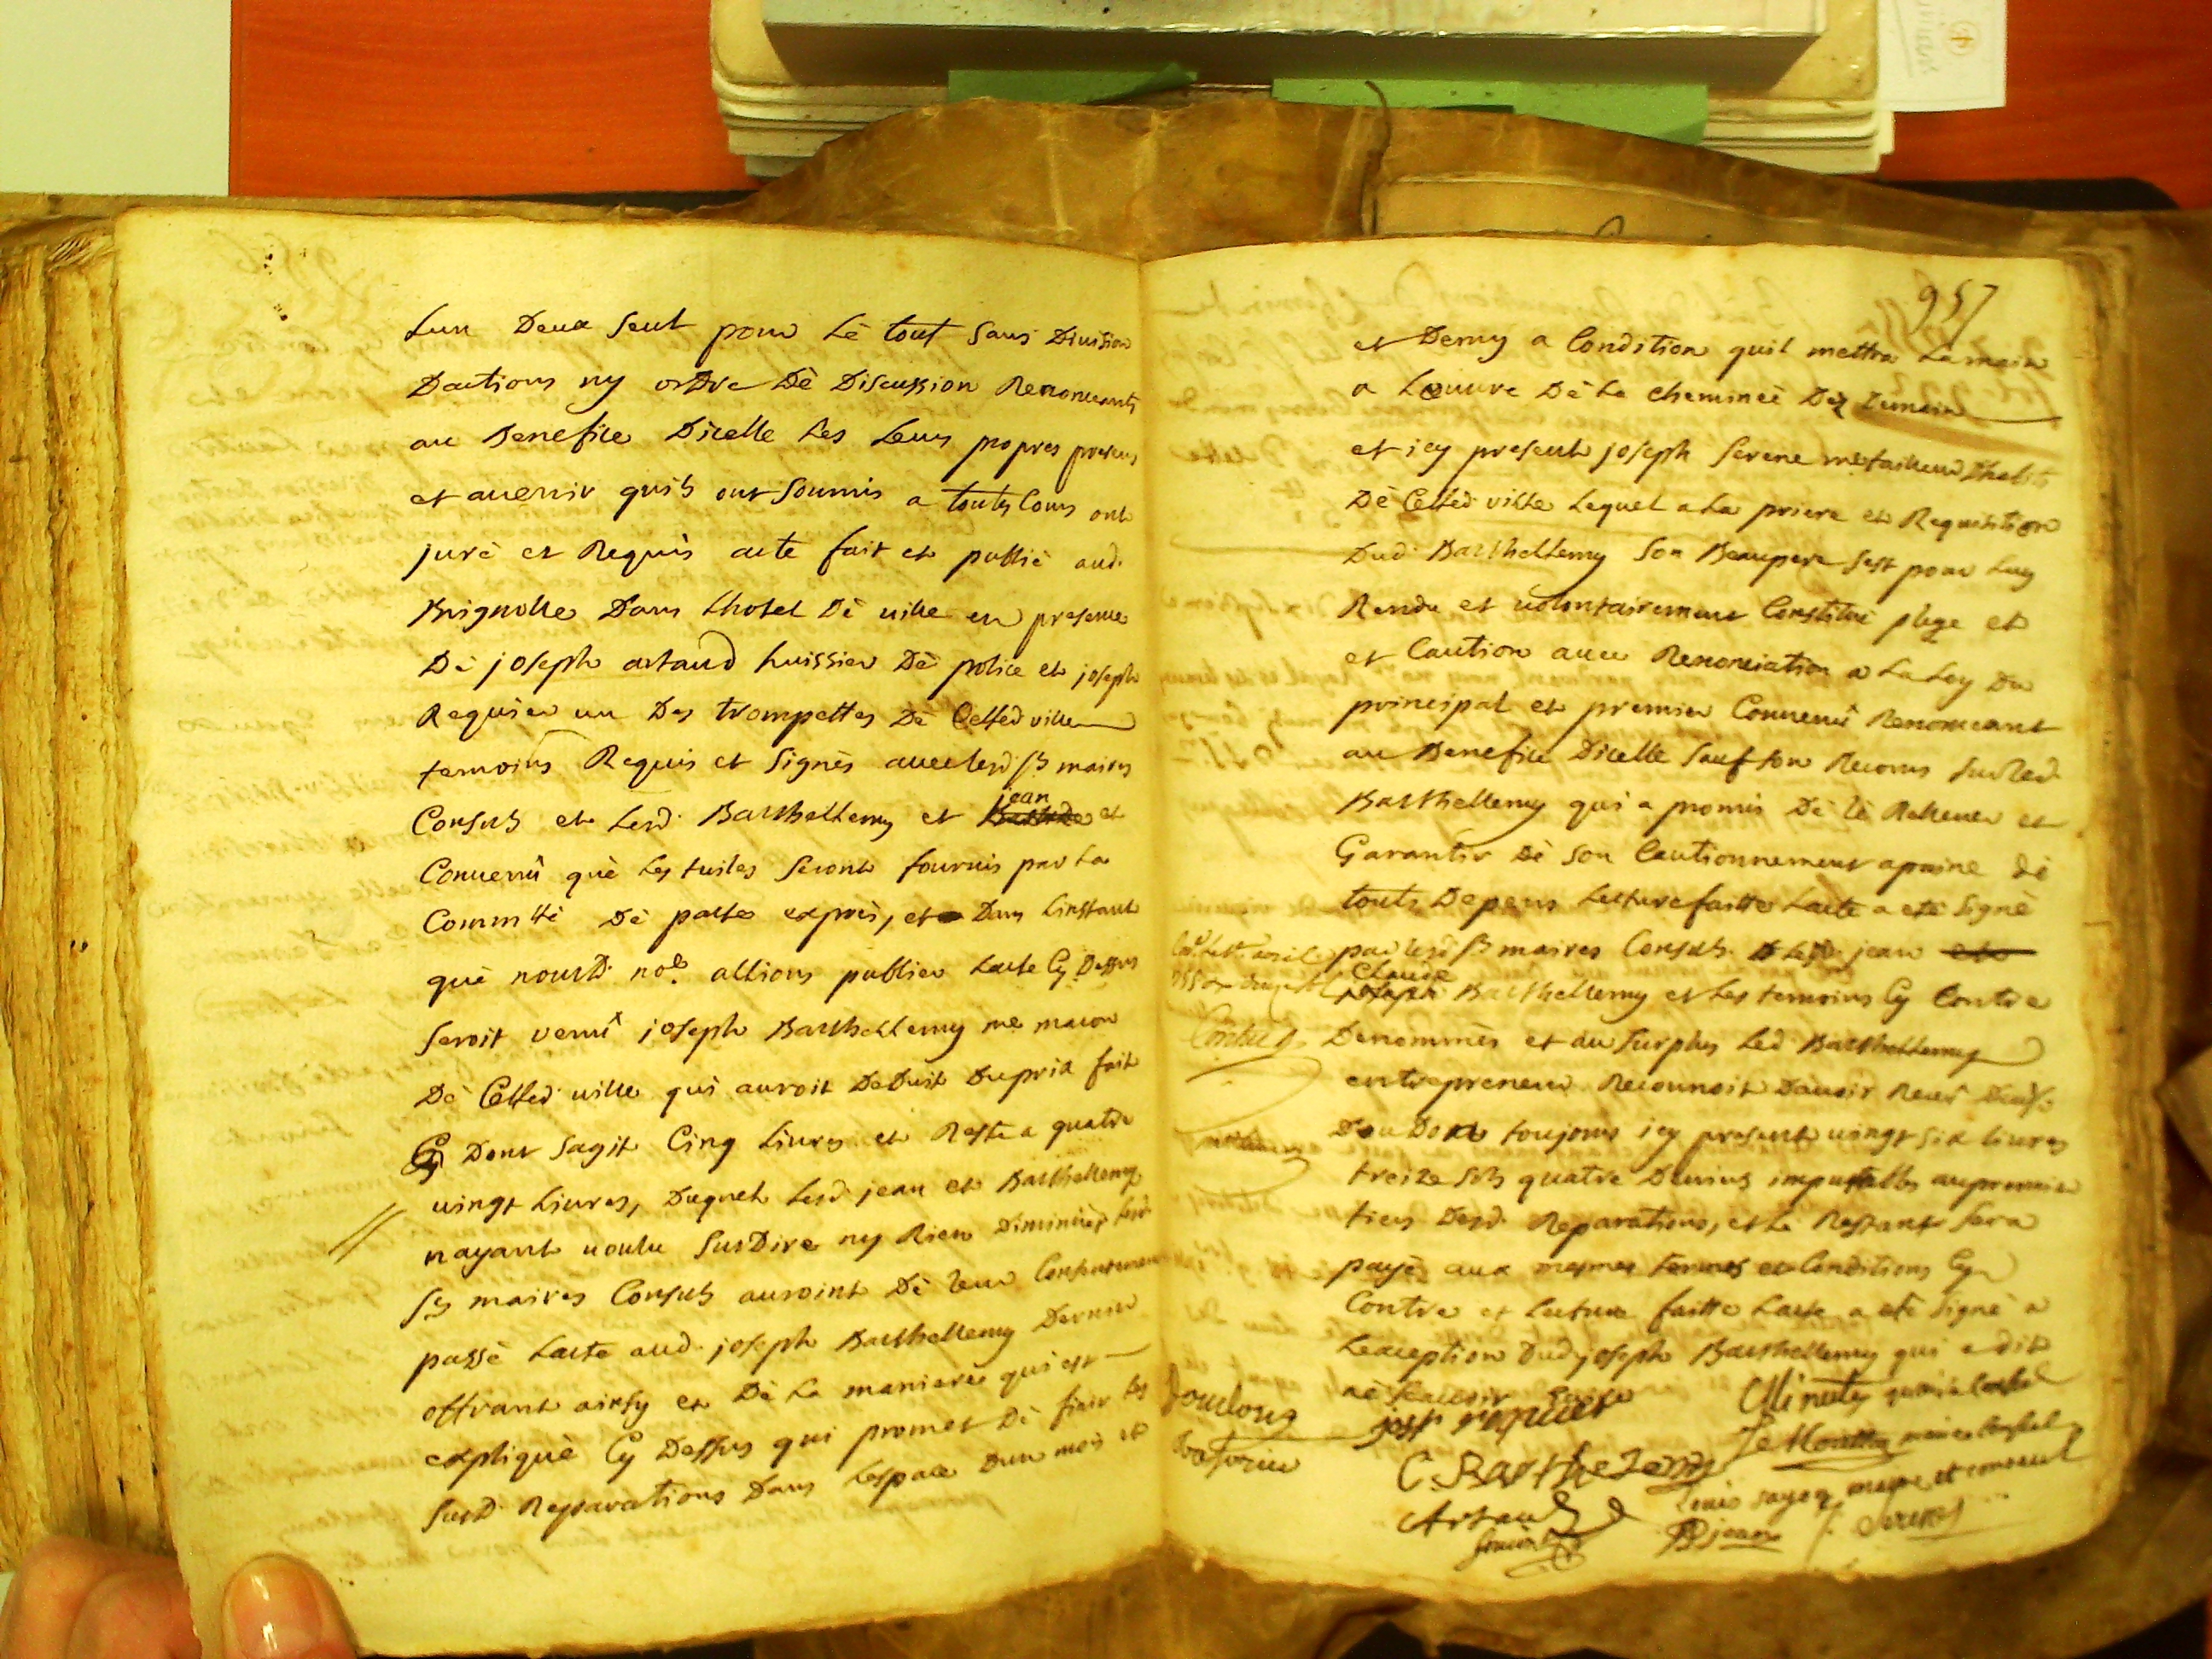 Lun Deux seul pour Lè tout sans Division
Dactions ny ordre Dè Discussion Renonceants
au Benefice Dicelle Les Leurs propres presens
et auenir quils ont soumis a toutes Cours ont
jurè et Requis acte fait et publiè aud.
Brignolle Dans Lhotel Dè uille en presence
Dè joseph artaud huissier Dè police et joseph
Requier un Des trompettes Dè Cetted ville
temoins Requis et signès auec lesd srs maires
Consuls et Lesd. Barthellemy et jean et
Conuenû què Les tuiles seront fournis par La
Commtè Dè pacte exprès, et Dans Linstant
què nousd. nore. allions publier Lacte Cy Dessus
seroit venû joseph Barthellemy me macon
Dè Cetted uille qui auroit Deduit Duprix fait
Dont sagit Cinq Liures et Reste a quatre
uingt Liures, Duquel Lesd jean et Barthellemy
nayant uoulu susDire ny Rien Diminuer Lesd
srs maires Consuls auroint Dè leur Consentement
passè Lacte aud. joseph Barthellemy Dernier
offrant ainsy et Dè La maniere qui est
expliquè Cy Dessus qui promet Dè finir les
susd. Reparations Dans Lespace Dun mois et
957
et Demy a Condition quil mettra Lamain
a Lœuure Dè La cheminèe Dez Demain
et icy present joseph serene mefaiseur Dhabits
Dè Cetted ville Lequel a La priere et Requisition
Dud. Barthellemy son Beaupere sest pour Luy
Rendu et uolontairement Constituè plege et
et Caution auec Renonciation a La Loy Du
principal et premier Conuenû Renonceant
au Benefice Dicelle sauf son Recours surled.
Barthellemy qui a promis Dè lè Releuer et
Garantir Dè son Cautionnement apeine dè
touts Depens Lecture faitte Lacte a etè signè
par lesd srs maires Consuls. Led. jean
Claude
Barthellemy et Les temoins Cy Contre
Denommès et du surplus Led Barthellemy
entrepreneur Reconnoit Dauoir Receû
toujours icy present uingt six liures
treize sols quatre Deniers imputables au premier
tiers Desd. Reparations, et Le Restant sera
payè aux mesmes termes et Conditions Cy
Contre et Lecture faitte Lacte a etè signè a
Lexeption Dud. joseph Barthellemy qui a dit
nè scauoir Ecrire
josph requier
Minuty maire Consul
C. Barthelemy
maire Consul
Artaud
maire et consul
jean
serene